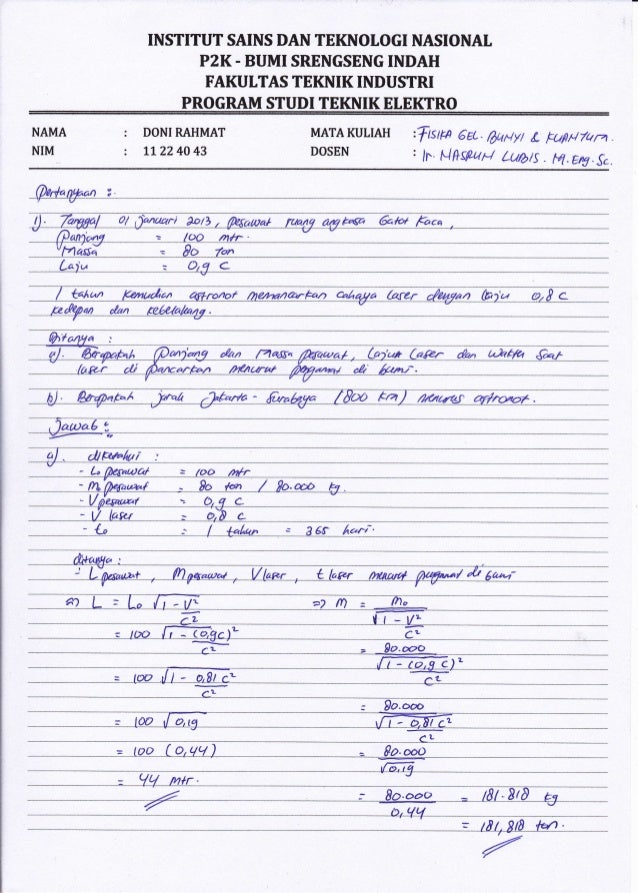 INSTITUT SAINS DAN TEKNOLOGI NASIONAL
P2K - BUMI SRENGSENG INDAH
FAKULTAS TEKNIK INDUSTRI
PROGRAM STUDI TEKNIK ELEKTRO
NAMA : DONI RAHMAT MATA KULIAH : FISIKA GEL. BUNYI & KUANTUM.
NIM : 11 22 40 43 DOSEN : Ir. MASRUM LUBIS. M.Eng.Sc.
Pertanyaan :
1). Tanggal 01 Januari 2013, pesawat ruang angkasa Gatot Kaca,
Panjang = 100 mtr.
Massa = 80 Ton
Laju = 0,9 C
1 tahun kemudian astronot memancarkan cahaya laser dengan laju 0,8 c
kedepan dan kebelakang.
Ditanya :
a). Berapakah Panjang dan Massa pesawat, lajur laser dan waktu saat
laser di pancarkan menurut pengamat di bumi.
b). Berapakah jarak Jakarta - Surabaya (800 km) menurut astronot.
Jawab :
a). diketahui :
- Lo pesawat = 100 mtr
- Mo pesawat = 80 ton / 80.000 kg.
- V pesawat = 0,9 c
- V laser = 0,8 c
- to = 1 tahun = 365 hari.
ditanya :
- L pesawat, M pesawat, V laser, t laser menurut pengamat di bumi
=> L = Lo √1 - V²/C² => m = mo/√1 - V²/C²
= 100 √1 - (0,9c)²/c² = 80.000/√1 - (0,9 c)²/c²
= 100 √1 - 0,81 c²/c² = 80.000/√1 - 0,81 c²/c²
= 100 √0,19 = 80.000/√0,19
= 100 (0,44) = 80.000/0,44 = 181.818 kg
= 44 mtr. = 181,818 ton.